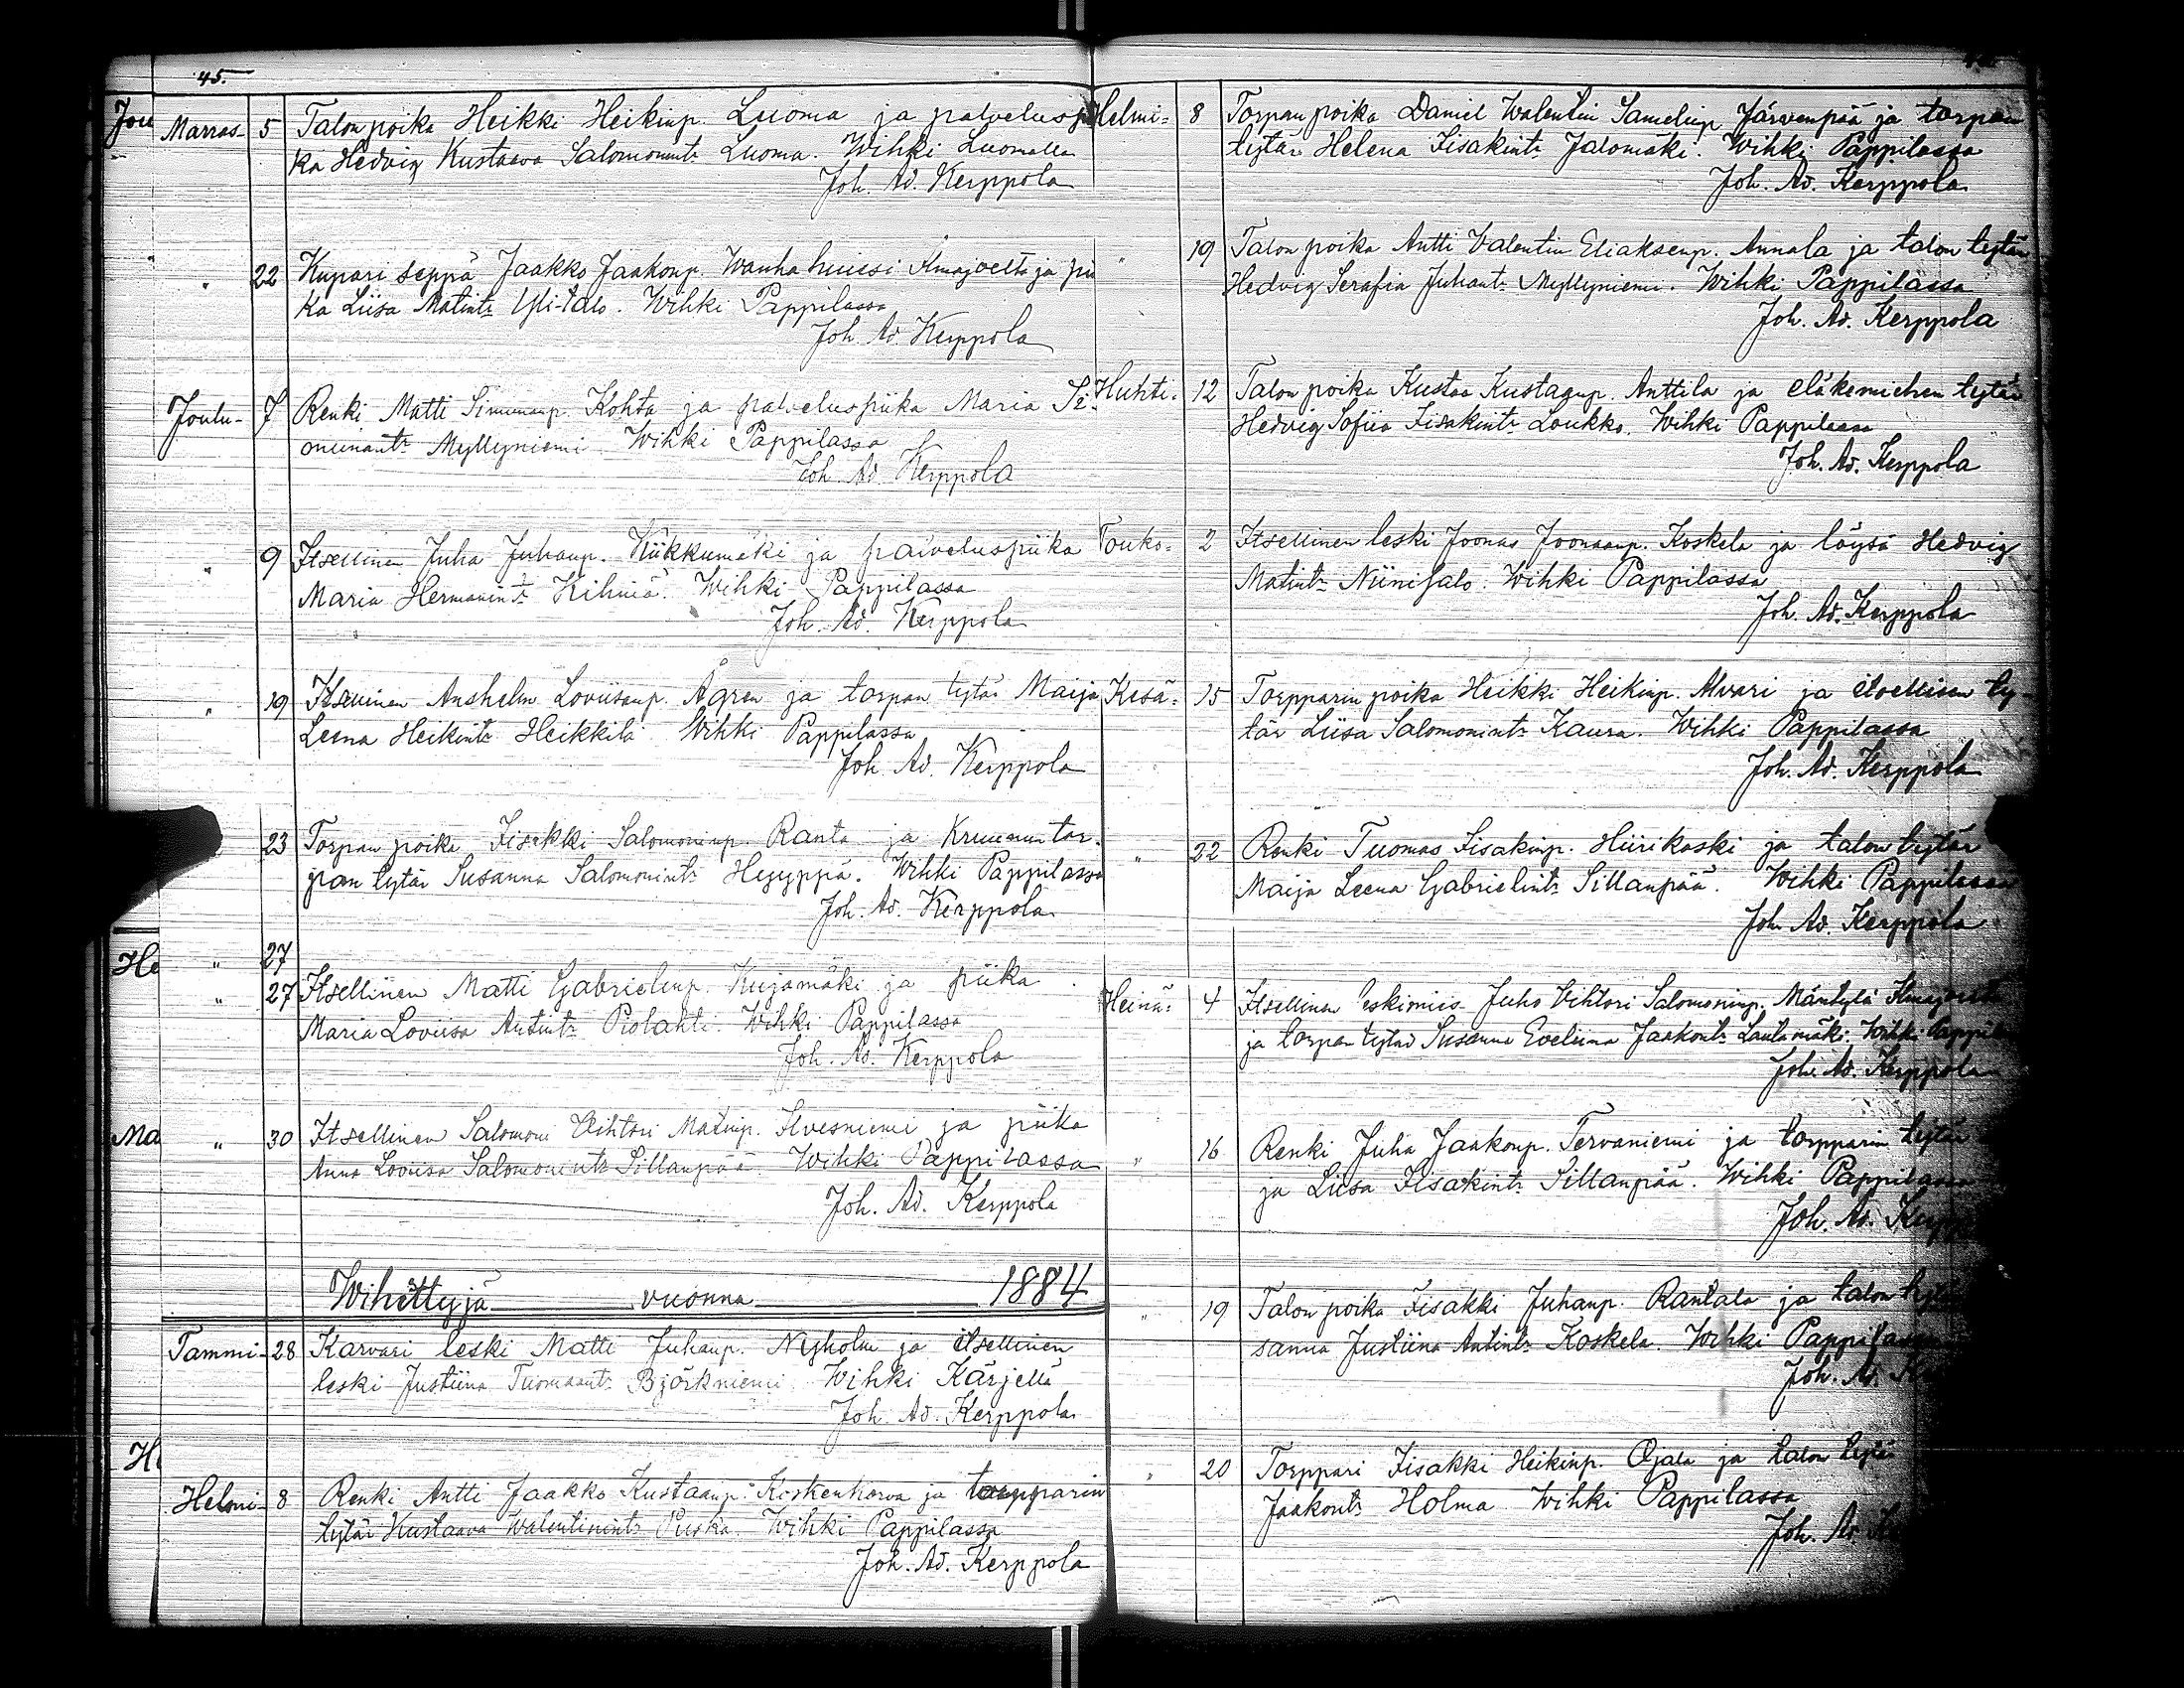 45.
Marras- 5 Talon poika Heikki Heikinp. Luoma ja palveluspii
ka Hedvig Kustaava Salomonintr Luoma. Wihki Luomalla
Joh. Ad. Kerppola
" 22 Kupari seppä Jaakko Jaakonp. Wanha Ilmajoelta ja pii
ka Liisa Matintr Yli-talo. Wihki Pappilassa
Joh. Ad. Kerppola
Joulu- 7 Renki Matti Simunanp. Kohta ja palveluspiika Maria Si-
muunantr Myllyniemi Wihki Pappilassa
Joh. Ad. Kerppola
" 9 Itsellinen Juha Juhanp. Kiikkumäki ja palveluspiika
Maria Hermanintr Kihniä. Wihki Pappilassa
Joh. Ad. Kerppola
" 19 Itsellinen Anshelm Loviisanp. Ågren ja torpan tytär Maija
Leena Heikintr Heikkilä Wihki Pappilassa
Joh. Ad. Kerppola
23 Torpan poika Iisakki Salomoninp. Ranta ja Kruunun tor-
pan tytär Susanna Salomonintr Hegyppiä. Wihki Pappilassa
Joh. Ad. Kerppola
" 27
" 27 Itsellinen Matti Gabrielinp. Kujamäki ja piika
Maria Loviisa Antintr Piolahti. Wihki Pappilassa
Joh. Ad. Kerppola
" 30 Itsellinen Salomoni Vihtori Matinp. Ilvesniemi ja piika
Anna Loviisa Salomonintr Sillanpää. Wihki Pappilassa
Joh. Ad. Kerppola
Wihittyjä vuonna 1884
Tammi- 28 Karvari leski Matti Juhanp. Nyholm ja itsellinen
leski Justiina Tuomaantr Björkniemi. Wihki Kärjellä
Joh. Ad. Kerppola
Helmi- 8 Renki Antti Jaakko Kustaanp. Koskenkorva ja torpparin
tytär Kustaava Walentinintr Puska. Wihki Pappilassa
Joh. Ad. Kerppola
Helmi- 8 Torpan poika Daniel Walentin Samelinp. Järvenpää ja torpan
tytär Helena Iisakintr Jalomäki. Wihki Pappilassa
Joh. Ad. Kerppola
" 19 Talon poika Antti Valentin Eliaksenp. Annala ja talon tytär
Hedvig Serafia Juhantr Myllyniemi. Wihki Pappilassa
Joh. Ad. Kerppola
Huhti- 12 Talon poika Kustaa Kustaanp. Anttila ja eläkemiehen tytär
Hedvig Sofiia Iisakintr Loukko. Wihki Pappilassa
Joh. Ad. Kerppola
Touko- 2 Itsellinen leski Joonas Joonaanp. Koskela ja löysä Hedvig
Matintr Niinisalo. Wihki Pappilassa
Joh. Ad. Kerppola
Kesä- 15 Torpparin poika Heikki Heikinp. Alvari ja itsellisen ty-
tär Liisa Salomonintr Kaura. Wihki Pappilassa
Joh. Ad. Kerppola
" 22 Renki Tuomas Iisakinp. Hiirikoski ja talon tytär
Maija Leena Gabrielintr Sillanpää. Wihki Pappilassa
Joh. Ad. Kerppola
Heinä- 4 Itsellinen leskimies Juho Vihtori Salomoninp. Mäntylä Ilmajoelta
ja torpan tytär Susanna Eveliina Jaakontr Lautamäki. Wihki Pappila
Joh. Ad. Kerppola
" 16 Renki Juha Jaakonp. Tervaniemi ja torpparin tytär
ja Liisa Iisakintr Sillanpää. Wihki Pappilassa
Joh. Ad. Kerpp
" 19 Talon poika Iisakki Juhanp. Rantala ja talon tytär
sanna Justiina Antintr Koskela. Wihki Pappilassa
Joh. Ad. Ke
" 20 Torppari Iisakki Heikinp. Ojala ja talon tytä
Jaakontr Holma Wihki Pappilassa
Joh. Ad. Ke